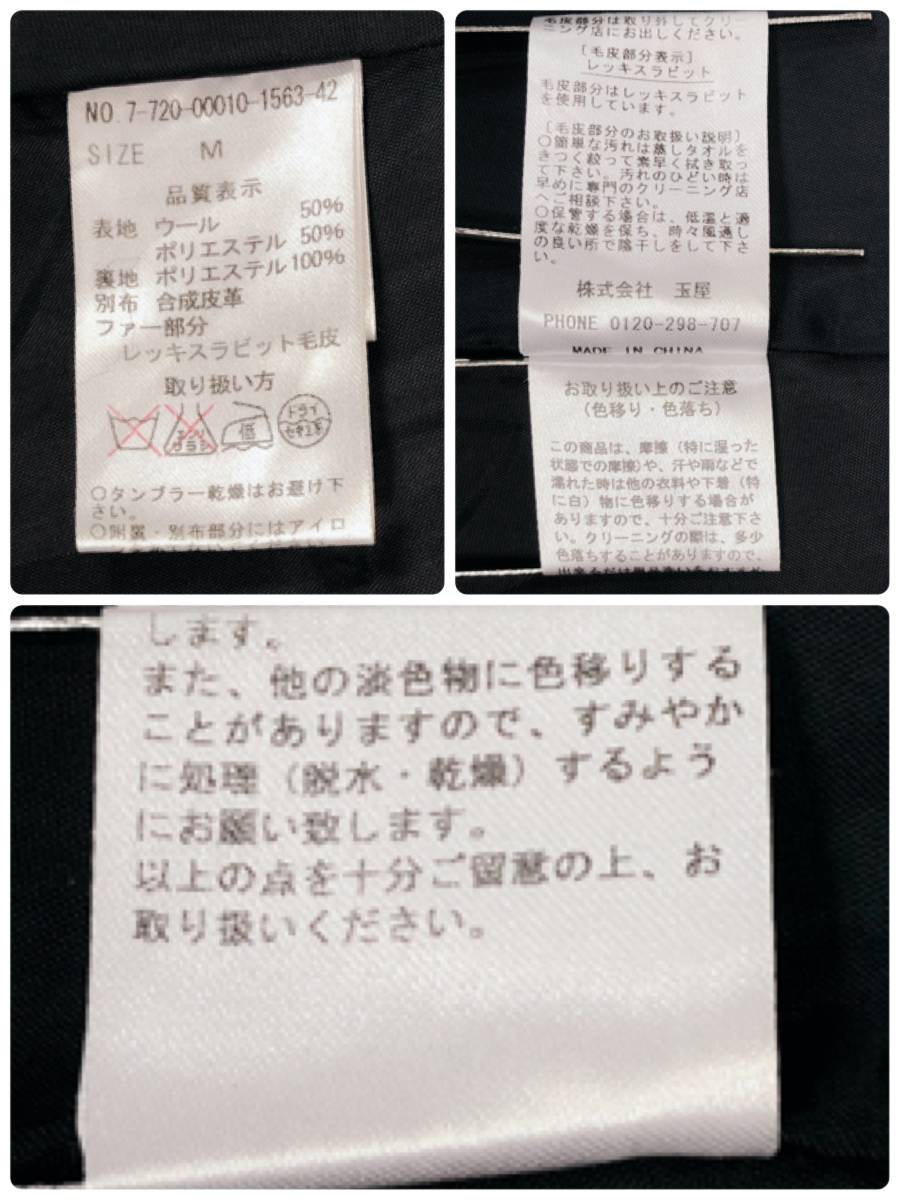 NO.7-720-00010-1563-42
SIZE M
品質表示
表地 ウール 50%
ポリエステル 50%
裏地 ポリエステル 100%
別布 合成皮革
ファー部分
レッキスラビット毛皮
取り扱い方
エンソサラシ 低 ドライ セキユ系
○タンブラー乾燥はお避け下
さい。
○附属・別布部分にはアイロ
毛皮部分は取り外してクリー
ニング店にお出しください。
[毛皮部分表示]
レッキスラビット
毛皮部分はレッキスラビット
を使用しています。
[毛皮部分のお取扱い説明]
○簡単な汚れは蒸しタオルを
きつく絞って素早く拭き取っ
て下さい。汚れのひどい時は
早めに専門のクリーニング店
へご相談下さい。
○保管する場合は、低温と適
度な乾燥を保ち、時々風通し
の良い所で陰干しをして下さ
い。
株式会社 玉屋
PHONE 0120-298-707
MADE IN CHINA
お取り扱い上のご注意
(色移り・色落ち)
この商品は、摩擦(特に湿った
状態での摩擦)や、汗や雨などで
濡れた時は他の衣料や下着(特
に白)物に色移りする場合が
ありますので、十分ご注意下さ
い。クリーニングの際は、多少
色落ちすることがありますので、
出来るだけ単品洗いをおすすめ
します。
また、他の淡色物に色移りする
ことがありますので、すみやか
に処理(脱水・乾燥)するよう
にお願い致します。
以上の点を十分ご留意の上、お
取り扱いください。